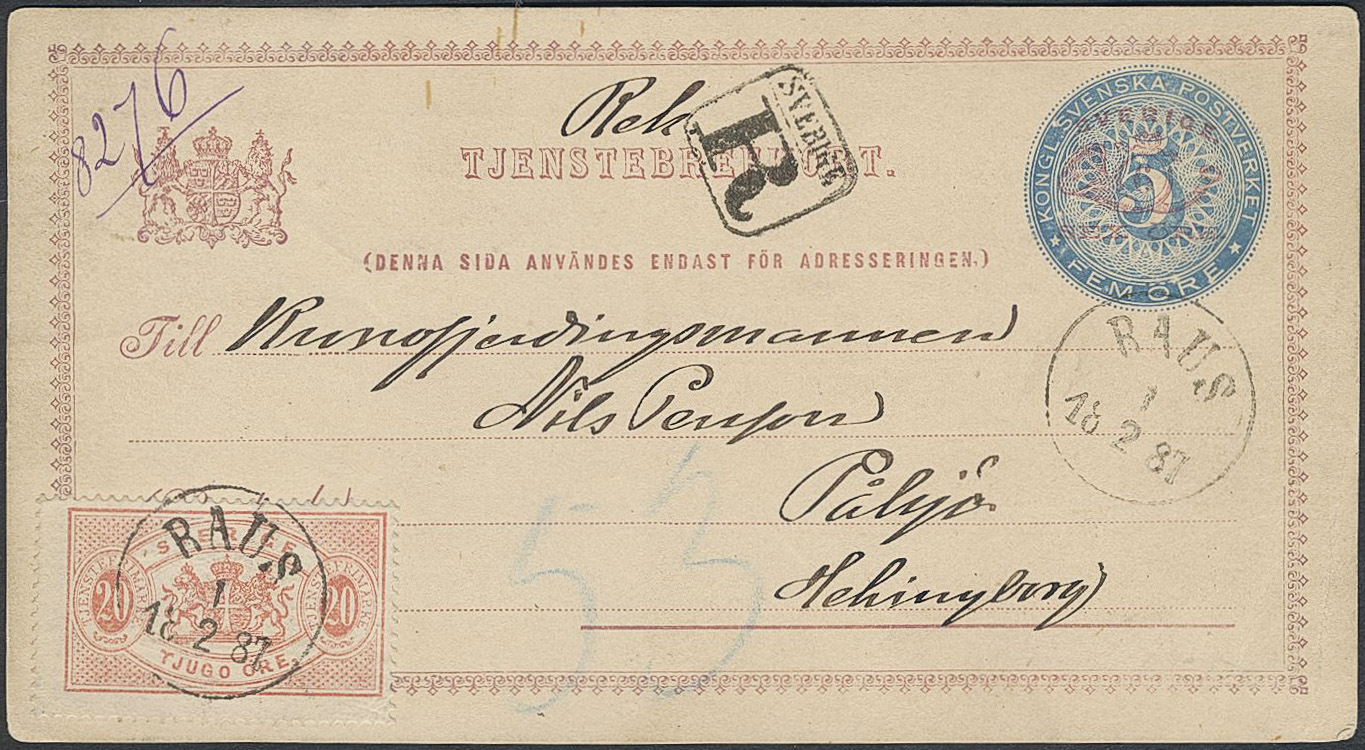 8276
Rek
SVERIGE
R
TJENSTEBREFKORT.
KONGL. SVENSKA POSTVERKET
SVERIGE
5
FEM ÖRE
(DENNA SIDA ANVÄNDES ENDAST FÖR ADRESSERINGEN.)
Till
Nils
Pålsjö
Helsingborg
RAUS
1
18 2 87
53
SVERIGE
TJENSTEFRIMÄRKE
20
TJENSTEFRIMÄRKE
20
TJUGO ÖRE.
RAUS
1
18 2 87